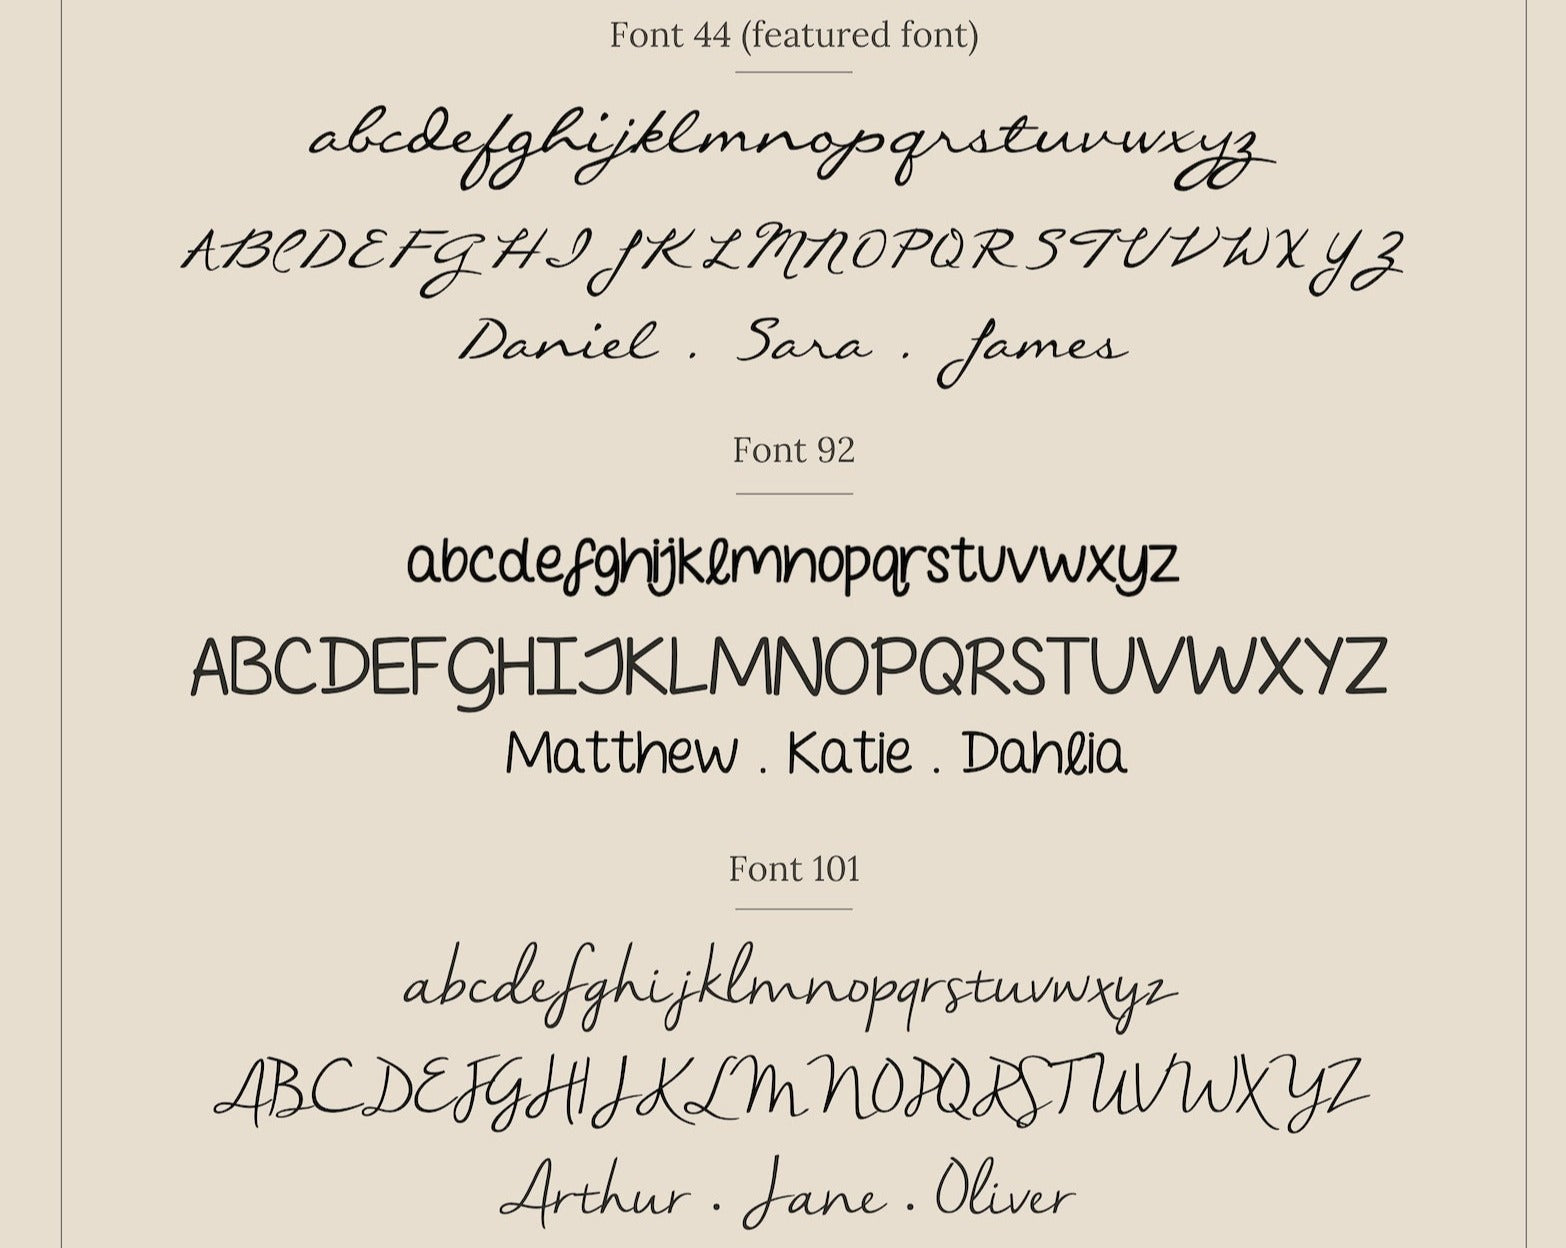 Font 44 (featured font)
abcdefghijklmnopqrstuvwxyz
ABCDEFGHIJKLMNOPQRSTUVWXYZ
Daniel . Sara . James
Font 92
abcdefghijklmnopqrstuvwxyz
ABCDEFGHIJKLMNOPQRSTUVWXYZ
Matthew . Katie . Dahlia
Font 101
abcdefghijklmnopqrstuvwxyz
ABCDEFGHIJKLMNOPQRSTUVWXYZ
Arthur . Jane . Oliver